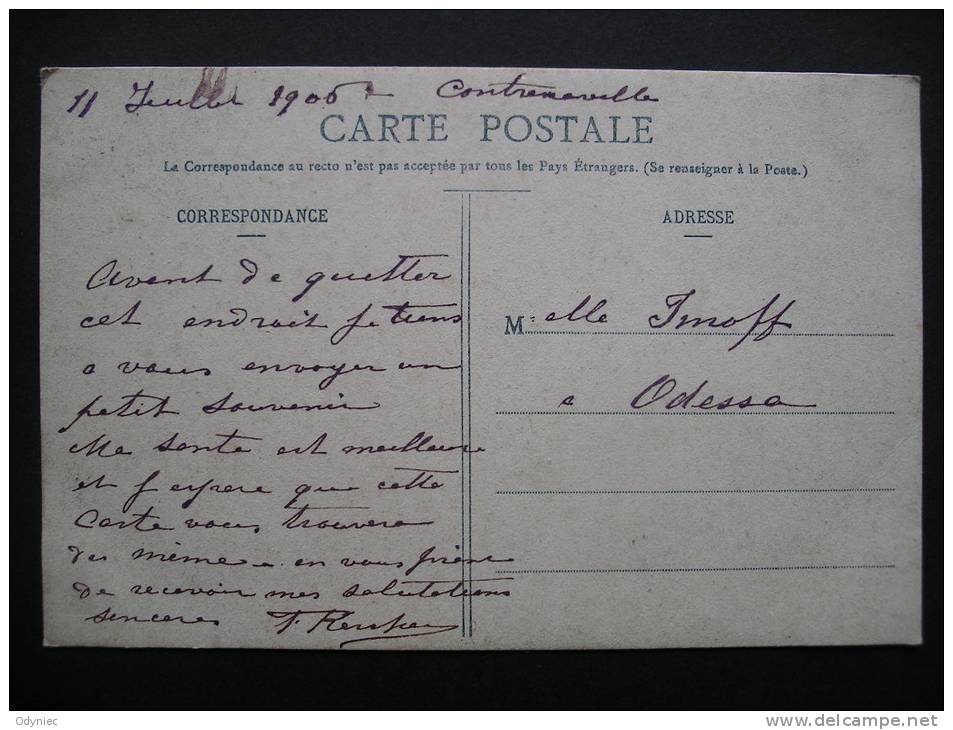 11 Juillet 1906 Contrexeville
CARTE POSTALE
La Correspondance au recto n'est pas acceptée par tous les Pays Étrangers. (Se renseigner à la Poste.)
CORRESPONDANCE
Avant de quitter
cet endroit je tiens
a vous envoyer un
petit souvenir
Ma sante est meilleure
et j espere que cette
Carte vous trouvera
de même en vous priant
de recevoir mes salutations
sinceres
ADRESSE
M elle Imoff
a Odessa
Odyniec
www.delcampe.net